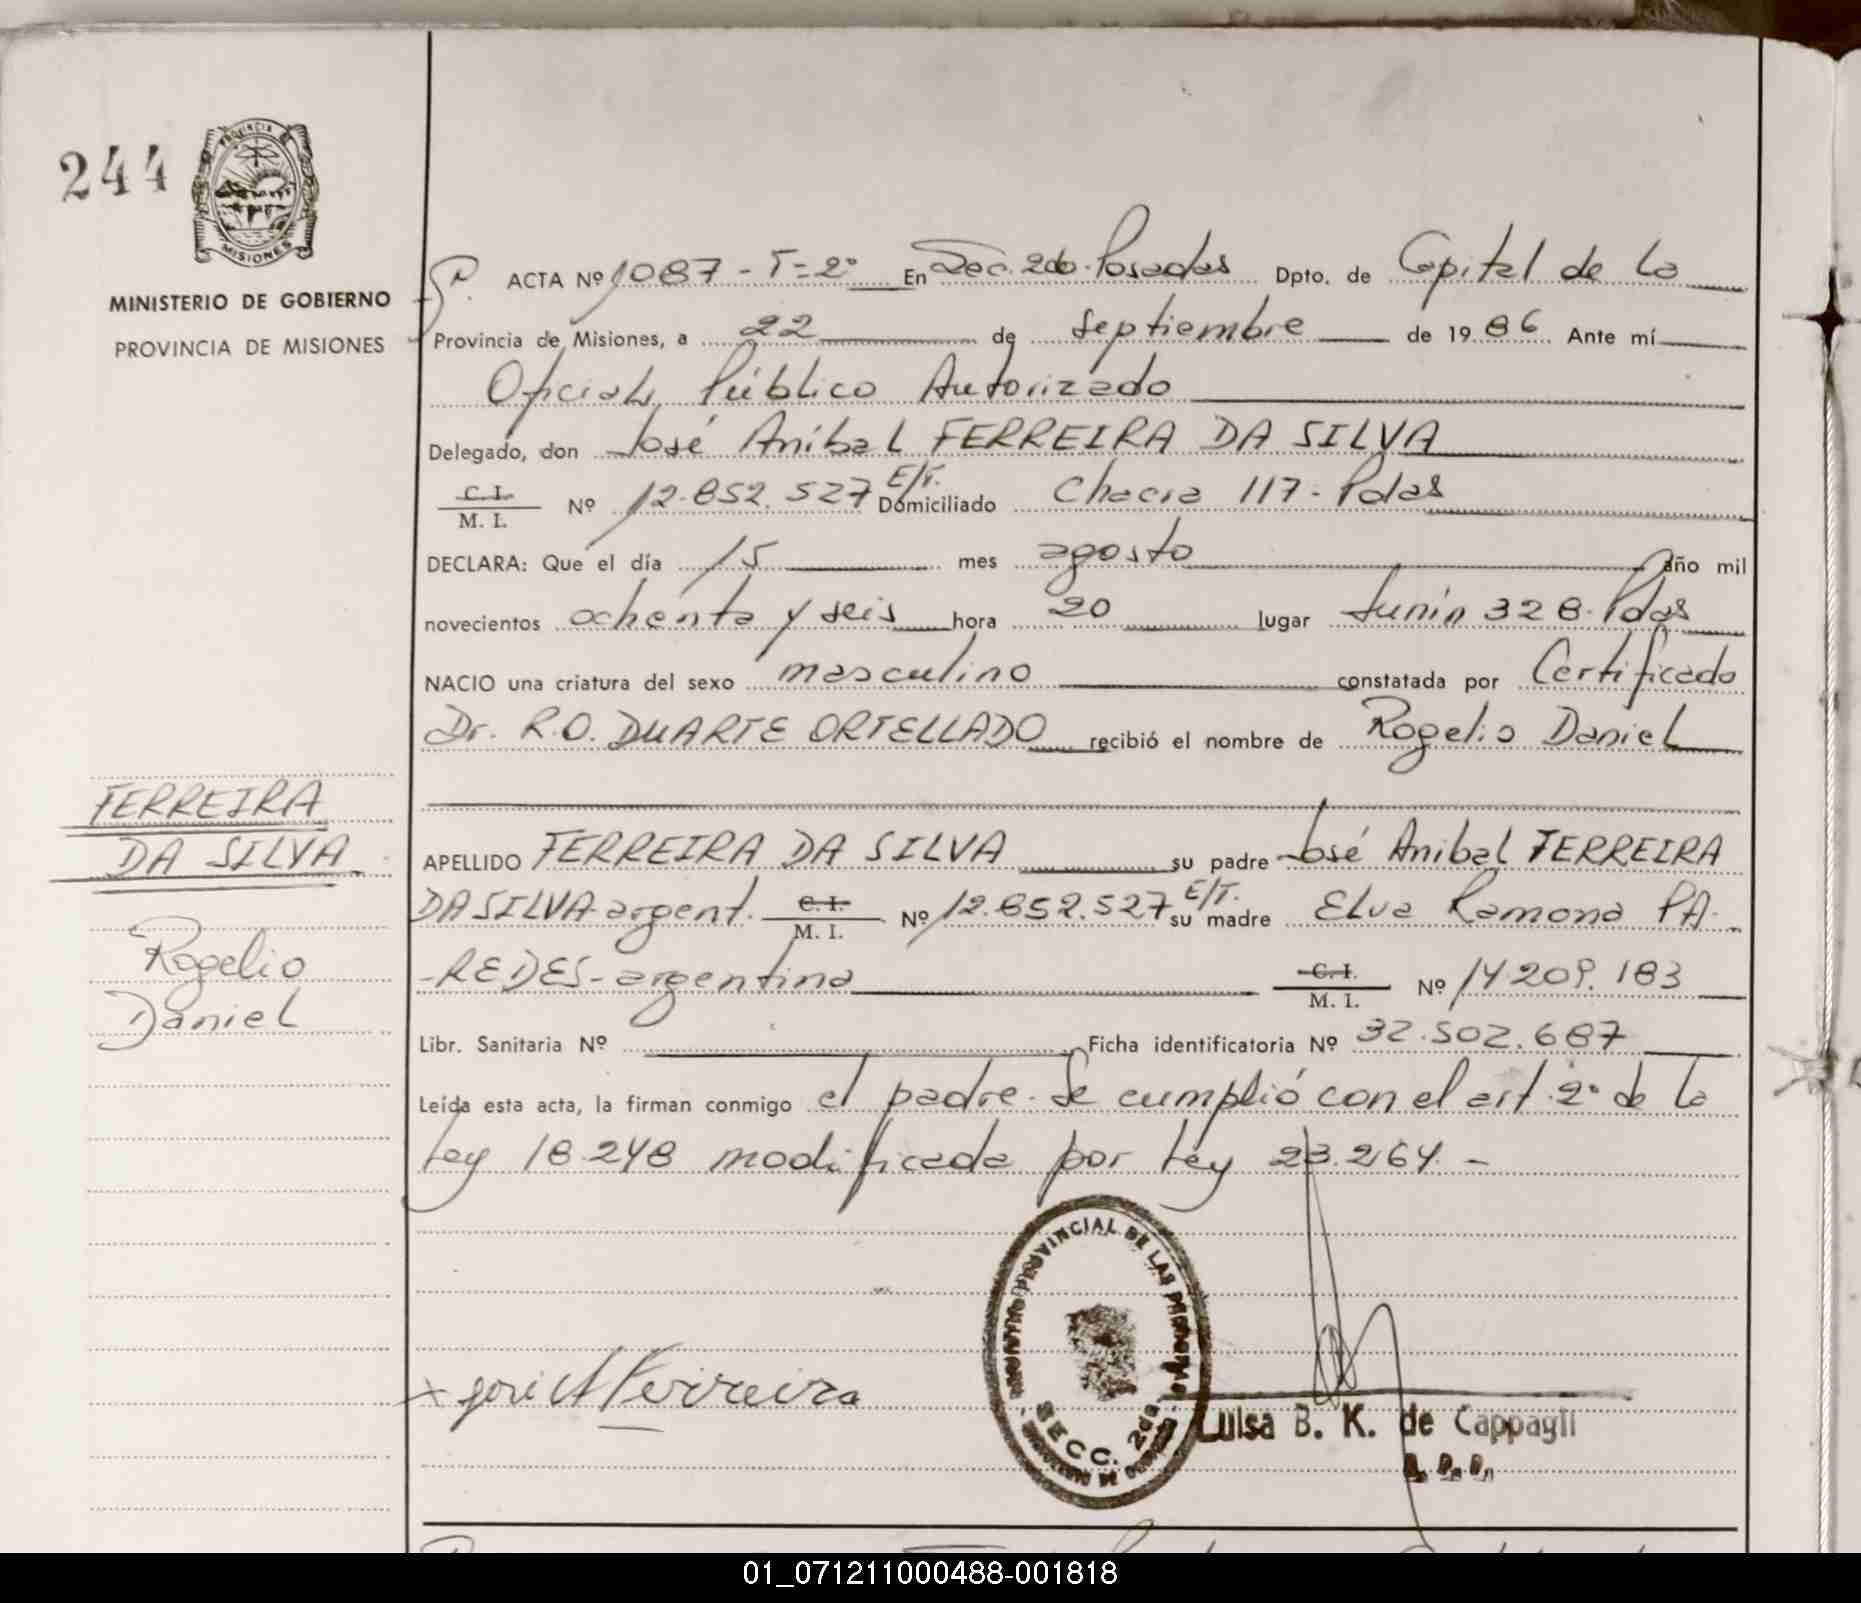 244
PROVINCIA DE
MISIONES
MINISTERIO DE GOBIERNO
PROVINCIA DE MISIONES
ACTA Nº 1087 - T=2º En Sec. 2da. Posadas Dpto. de Capital de la
Provincia de Misiones, a 22 de septiembre de 1986 Ante mí
Oficial Público Autorizado
Delegado, don José Aníbal FERREIRA DA SILVA
C.I. / M. I. Nº 12.852.527 E/T. Domiciliado Chacra 117- Pdas
DECLARA: Que el día 15 mes agosto año mil
novecientos ochenta y seis hora 20 lugar Junín 328- Pdas
NACIO una criatura del sexo masculino constatada por Certificado
Dr. R.O. DUARTE ORTELLADO recibió el nombre de Rogelio Daniel
APELLIDO FERREIRA DA SILVA su padre José Anibal FERREIRA
DA SILVA- argent. C.I. / M. I. Nº 12.852.527 E/T. su madre Elva Ramona PA-
-REDES- argentina C.I. / M. I. Nº 14.209.183
Libr. Sanitaria Nº Ficha identificatoria Nº 32.502.687
Leída esta acta, la firman conmigo el padre. Se cumplió con el art. 2º de la
Ley 18.248 modificada por Ley 23.264.-
FERREIRA
DA SILVA
Rogelio
Daniel
x José A Ferreira
PROVINCIAL DE LAS PERSONAS
SECC. 2da
Luisa B. K. de Cappagli
01_071211000488-001818